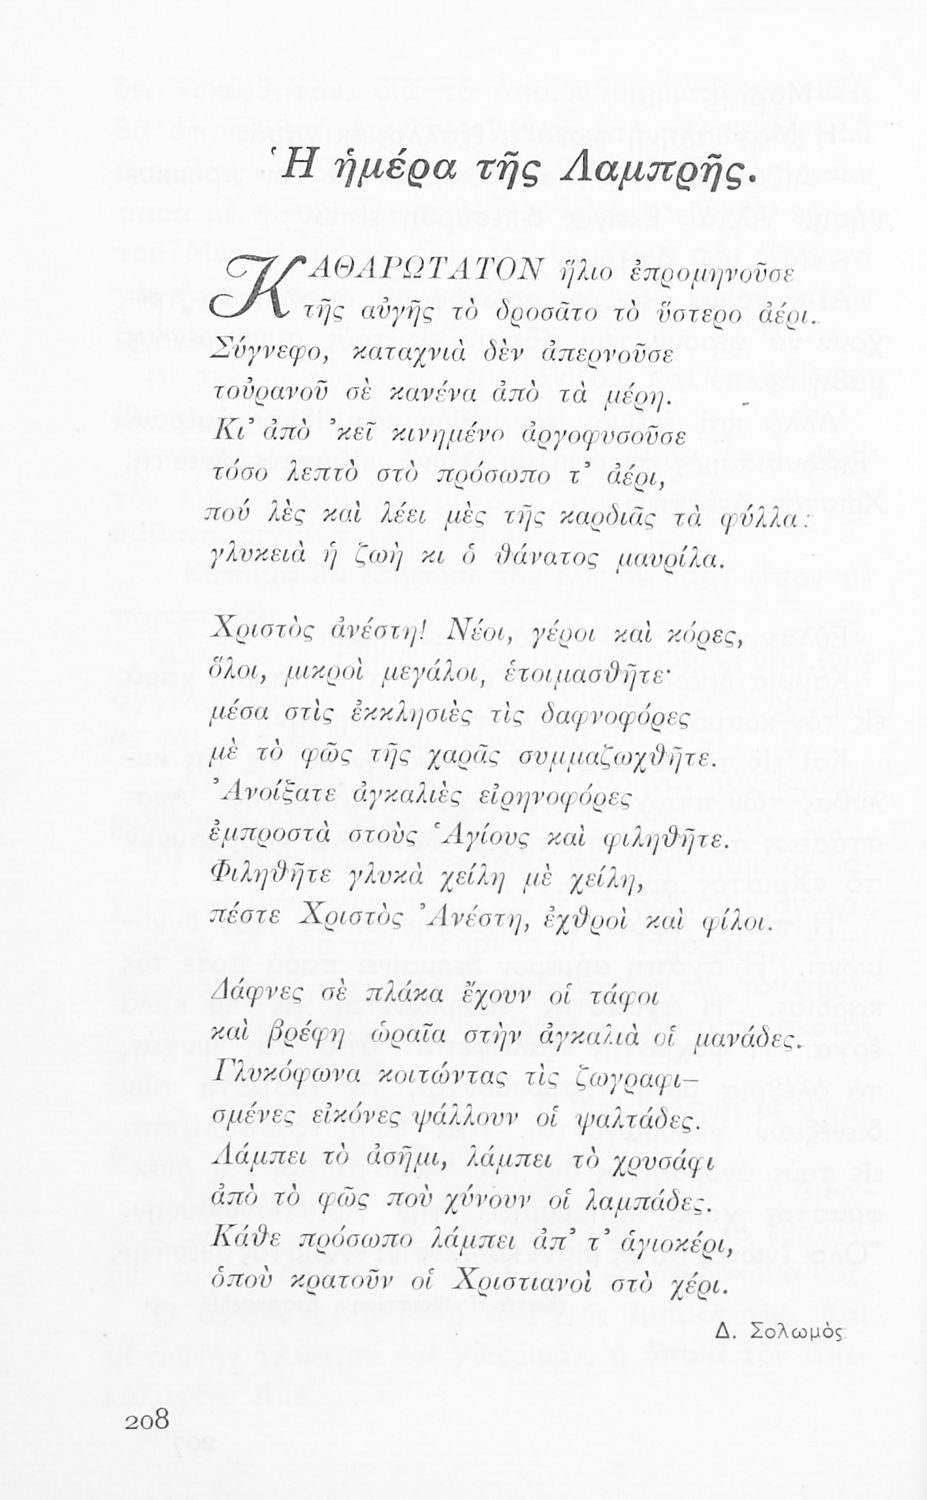 Ἡ ἡμέρα τῆς Λαμπρῆς.
ΚΑΘΑΡΩΤΑΤΟΝ ἥλιο ἐπρομηνοῦσε
τῆς αὐγῆς τὸ δροσᾶτο τὸ ὕστερο ἀέρι.
Σύγνεφο, καταχνιὰ δὲν ἀπερνοῦσε
τοὐρανοῦ σὲ κανένα ἀπὸ τὰ μέρη.
Κι’ ἀπὸ ’κεῖ κινημένο ἀργοφυσοῦσε
τόσο λεπτὸ στὸ πρόσωπο τ’ ἀέρι,
πού λὲς καὶ λέει μὲς τῆς καρδιᾶς τὰ φύλλα:
γλυκειὰ ἡ ζωὴ κι ὁ θάνατος μαυρίλα.
Χριστὸς ἀνέστη! Νέοι, γέροι καὶ κόρες,
ὅλοι, μικροὶ μεγάλοι, ἑτοιμασθῆτε·
μέσα στὶς ἐκκλησιὲς τὶς δαφνοφόρες
μὲ τὸ φῶς τῆς χαρᾶς συμμαζωχθῆτε.
Ἀνοίξατε ἀγκαλιὲς εἰρηνοφόρες
ἐμπροστὰ στοὺς Ἁγίους καὶ φιληθῆτε.
Φιληθῆτε γλυκὰ χείλη μὲ χείλη,
πέστε Χριστὸς Ἀνέστη, ἐχθροὶ καὶ φίλοι.
Δάφνες σὲ πλάκα ἔχουν οἱ τάφοι
καὶ βρέφη ὡραῖα στὴν ἀγκαλιὰ οἱ μανάδες.
Γλυκόφωνα κοιτώντας τὶς ζωγραφι—
σμένες εἰκόνες ψάλλουν οἱ ψαλτάδες.
Λάμπει τὸ ἀσῆμι, λάμπει τὸ χρυσάφι
ἀπὸ τὸ φῶς ποὺ χύνουν οἱ λαμπάδες.
Κάθε πρόσωπο λάμπει ἀπ’ τ’ ἁγιοκέρι,
ὁποὺ κρατοῦν οἱ Χριστιανοὶ στὸ χέρι.
Δ. Σολωμὸς
208